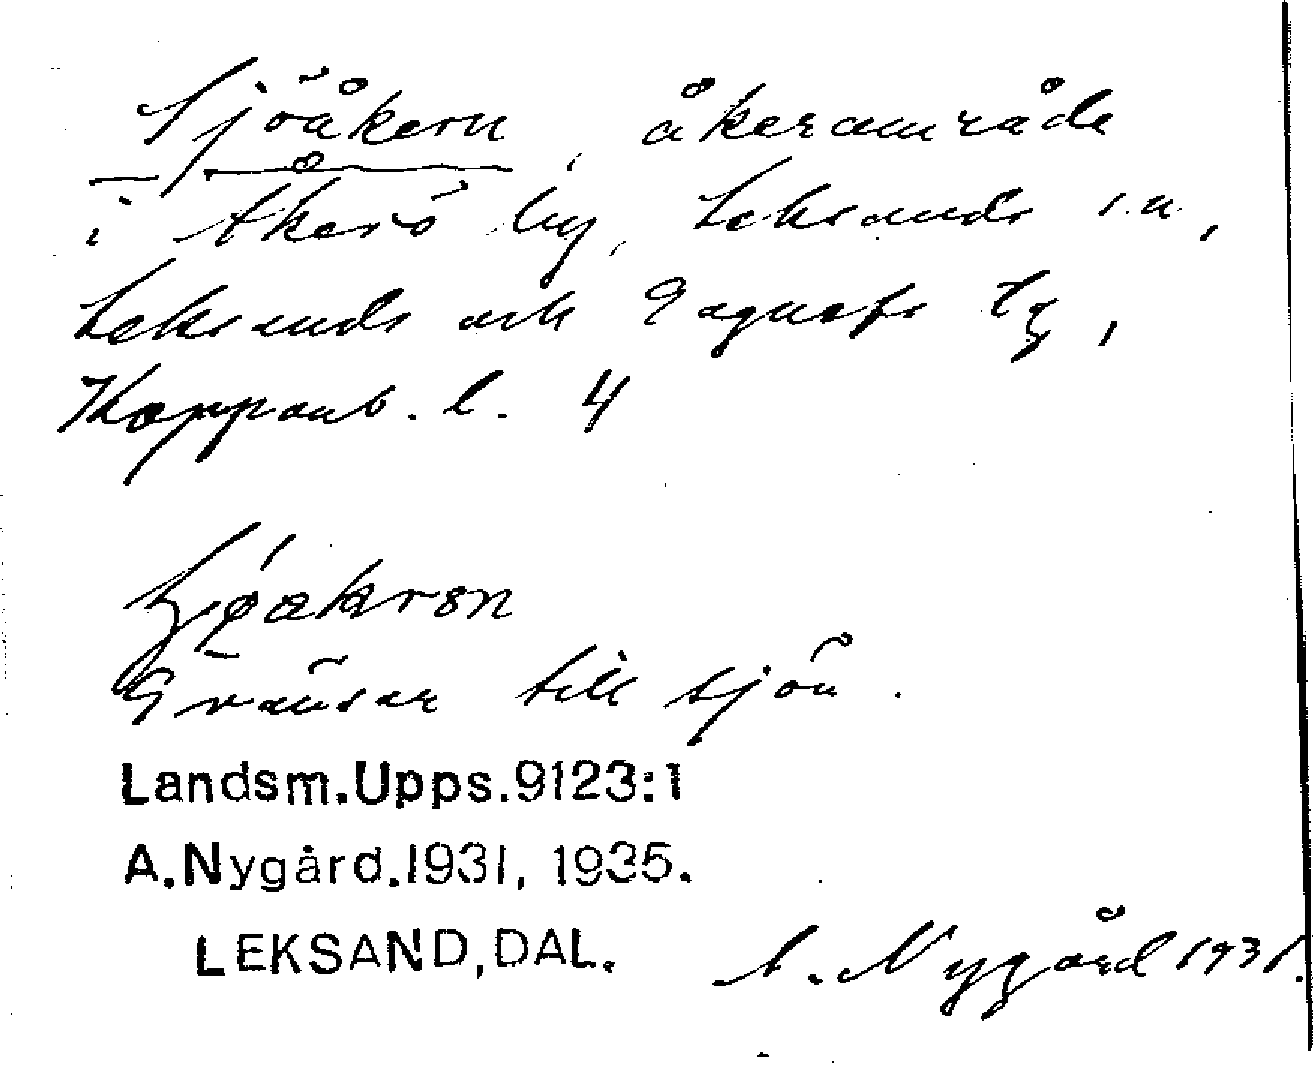 Sjöåkern, åkerområde
i Åkerö by, Leksands sn,
Leksands och Gagnefs tg,
Kopparb. l. 4
Gränsar till sjön.
Landsm.Upps.9123:1
A.Nygård.1931, 1935.
LEKSAND, DAL.
A. Nygård 1931.